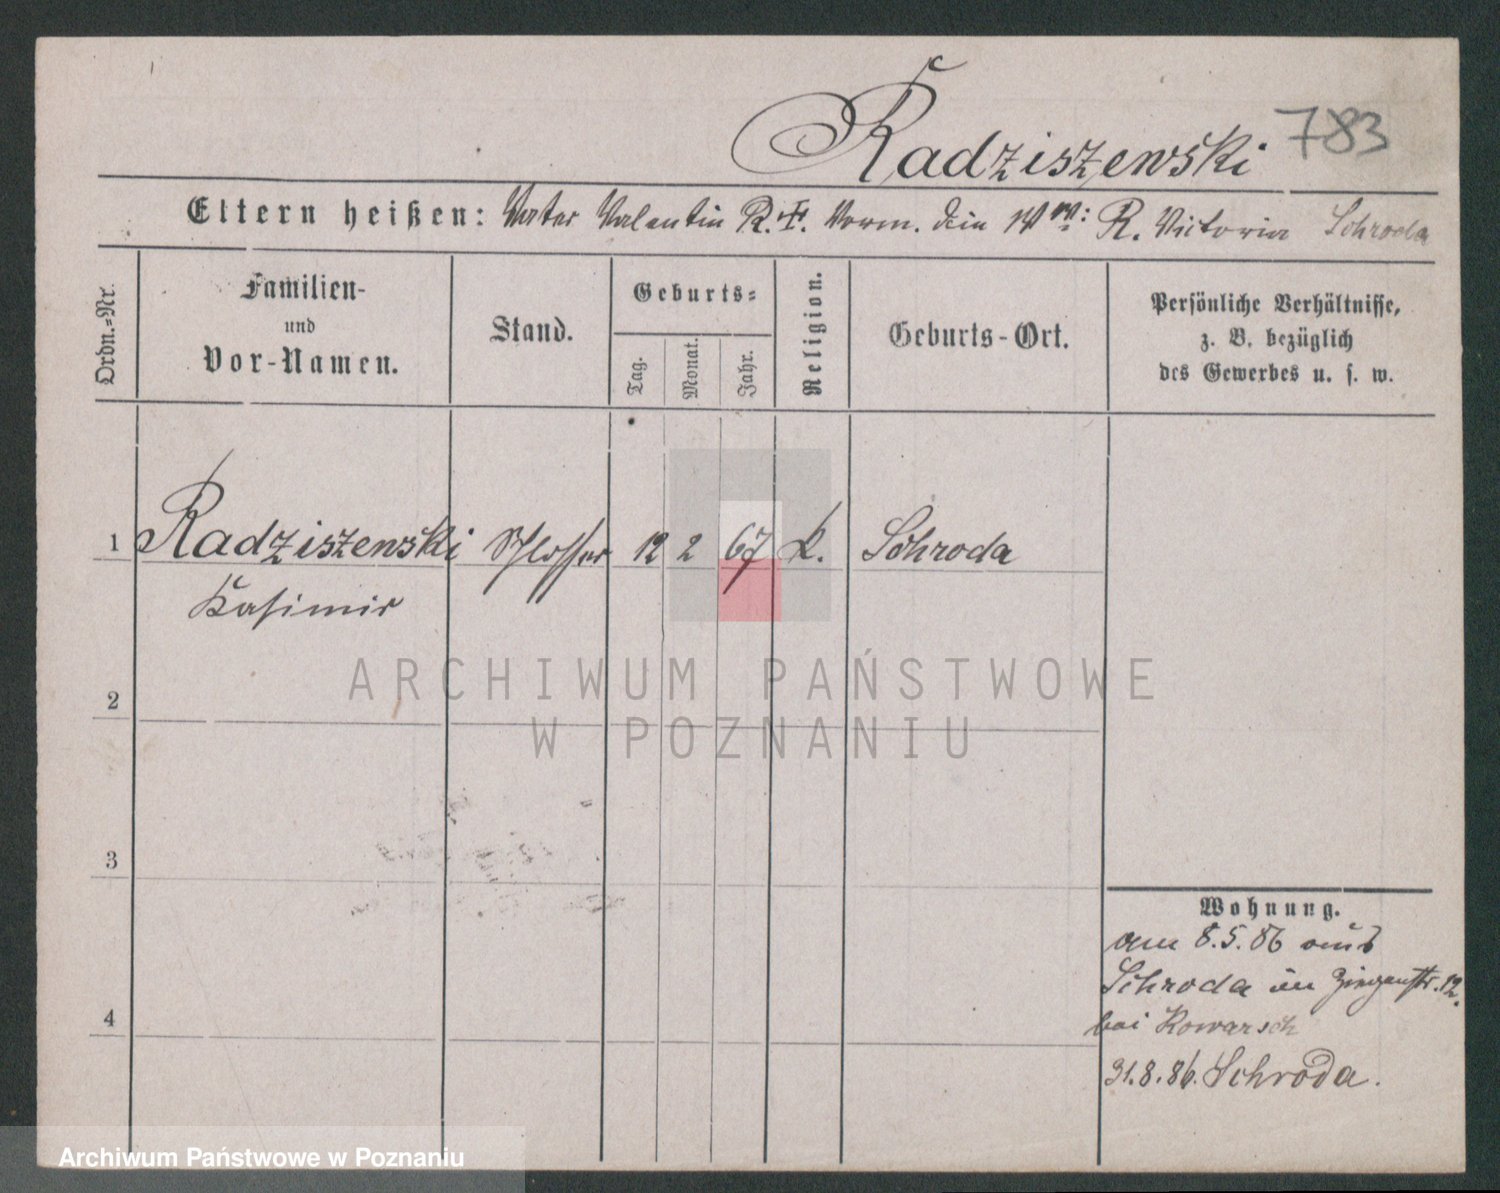 Radziszewski 783
Eltern heißen: Vater Valentin R. †. Vorm. die Wwe: R. Victoria Schroda
Ordn.=Nr.
Familien-
und
Vor-Namen.
Stand.
Geburts=
Tag.
Monat.
Jahr.
Religion.
Geburts-Ort.
Persönliche Verhältnisse,
z. B. bezüglich
des Gewerbes u. s. w.
1 Radziszewski Schlosser 12 2 67 k. Schroda
Kasimir
2
3
4
Wohnung.
am 8.5.86 aus
Schroda in Ziegenstr. 12.
bei Kowarsch
31.8.86. Schroda.
ARCHIWUM PAŃSTWOWE
W POZNANIU
Archiwum Państwowe w Poznaniu